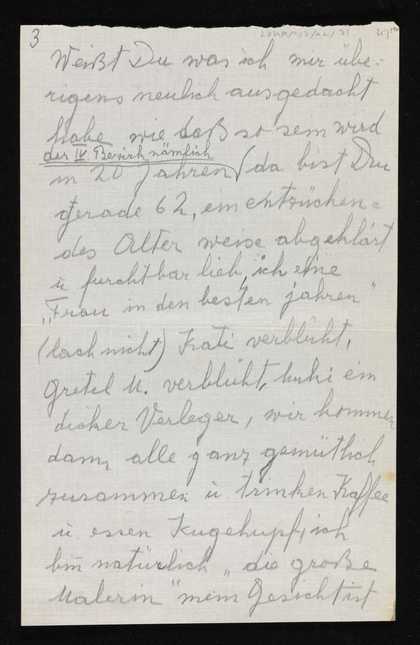 3
Weißt Du was ich mir übe-
rigens neulich ausgedacht
habe, wie das so sein wird
der IV. Bezirk nämlich
in 20 Jahren (da bist Du
gerade 62, ein entzücken=
des Alter weise abgeklärt
u furchtbar lieb, ich eine
„Frau in den besten jahren"
(lach nicht) Kati verblüht,
Gretel M. verblüht, ein
dicker Verleger, wir kommen
dann alle ganz gemütlich
zusammen u trinken Kaffee
u essen Kugehupf, ich
bin natürlich „die große
Malerin" mein Gesicht ist